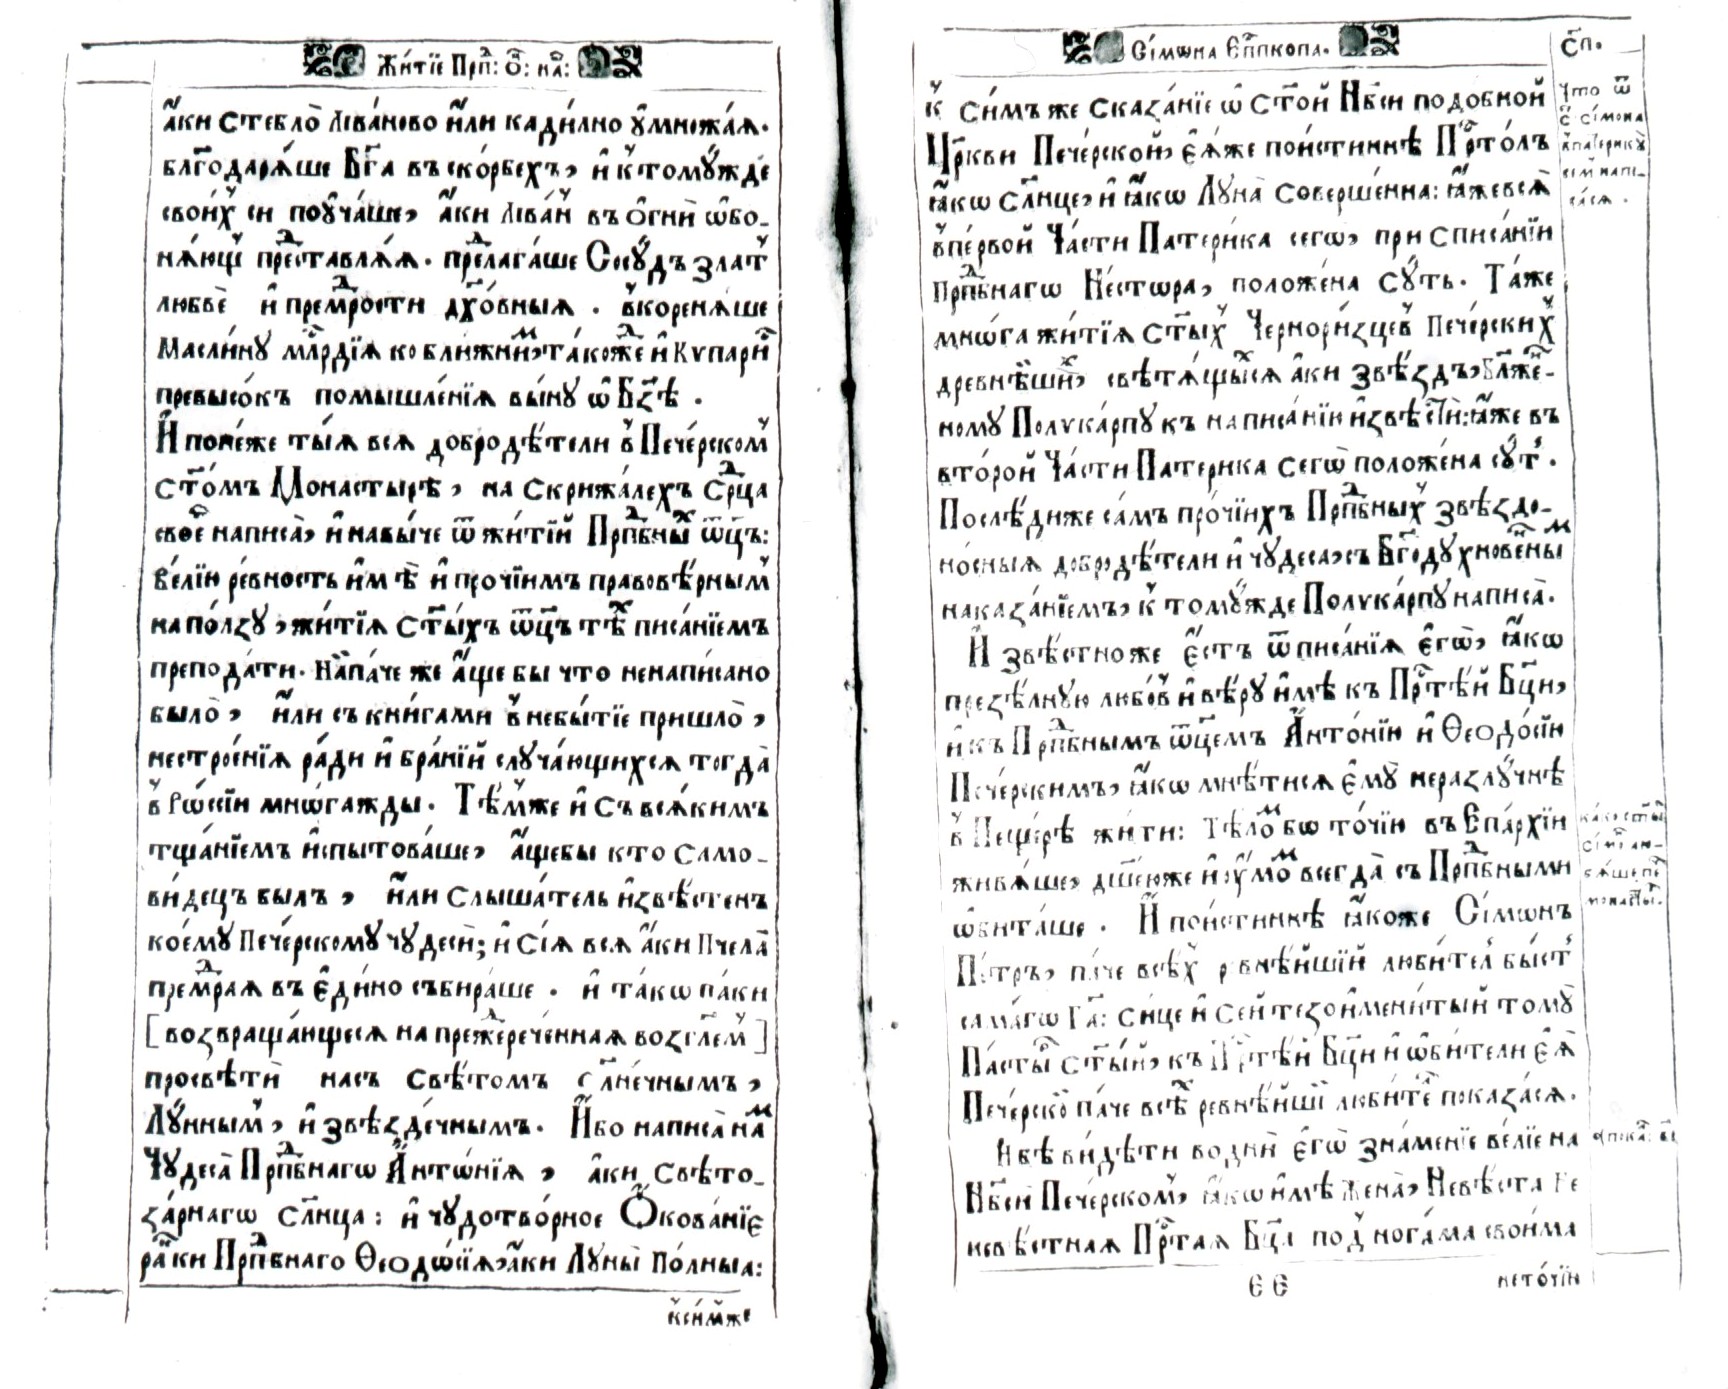 Жи́тїе Прп҇: Ѻ҃: на́:
а҆́ки стебло̀ Ліва́ново и҆́ли кади́лно ᲂу҆множа́ѧ.
блг҃одарѧ́ше Бг҃а въ ско́рбехъ, и҆ к̾ томꙋ́жде
свои́х̾ си поᲂуча́ше, а҆́ки ліва́н̾ въ ѻ҆гнѝ ѡ҆бо_
нѧ́ющ̾ представлѧ́ѧ. предлага́ше Сосꙋ́дъ злат̾
любвѐ и҆ премⷣрости дх҃о́вныѧ. в̾коренѧ́ше
Масли́нꙋ млⷭ҇рдїѧ ко бли́жнимъ, та́кожде и҆ Кѵпари́с
превысо́къ помышле́нїѧ вы́нꙋ ѡ҆ Бз҃ѣ.
И҆ поне́же ты́ѧ всѧ̀ добродѣ́тели в̾ Пече́рском̾
ст҃о́мъ Монастырѣ̀, на скрижа́лехъ Срⷣца
своегѡ̀ написа̀, и҆ навы́че ѿ жи́тїй Прпⷣбны́х ѿц҃ъ:
ве́лїю ре́вность и҆мѣ̀ и҆ про́чїимъ правовѣ́рным̾
на по́лзꙋ, жи́тїѧ ст҃ы́хъ ѿц҃ъ тѣ́х писа́нїемъ
препода́ти. наипа́че же а҆́ще бы что ненапи́сано
было̀, и҆́ли съ кни́гами в̾ небытїе пришло̀,
нестрое́нїѧ ра́ди и҆ бра́нїй слꙋча́ющихсѧ тогда̀
в̾ Рѡссі́и мнѡ́гажды. Тѣ́м̾же и҆ съ всѧ́кимъ
тща́нїемъ и҆спытова́ше, а҆́щебы кто само_
ви́децъ былъ, и҆́ли слы́шатель и҆звѣ́стенъ
кое́мꙋ Пече́рскомꙋ чꙋдесѝ; и҆ сїѧ̀ всѧ̀ а҆́ки Пчела̀
премⷣраѧ въ є҆ди́но събира́ше. и҆ та́кѡ па́ки
[возвраща́ющесѧ на прежⷣерече́ннаѧ возгл҃ем̾]
просвѣтѝ насъ свѣ́томъ сл҃нечнымъ,
Лꙋ́нным̾, и҆ ѕвѣзде́чнымъ. И҆́бо написа̀ намⷨ
Чꙋдеса̀ Прпⷣбнагѡ А҆нтѡ́нїѧ, а҆́ки свѣто_
за́рнагѡ сл҃нца: и҆ чꙋдотво́рное Ѻ҆кова́нїе
ра́ки Прпⷣбнаго Ѳеодѡ́сїѧ, а҆́ки Лꙋны̀ по́лныѧ:
к̾си́м̾же
Сі́мѡна Є҆пⷭ҇копа.
с҃п.
к̾ си́мъ же сказа́нїе ѡ҆ ст҃о́й Нб҃си подо́бной
Цр҃кви Пече́рской, є҆ѧ́же пои́стиннѣ Прⷭ҇то́лъ
ꙗ҆́кѡ сл҃нце, и҆ ꙗ҆́кѡ Лꙋна̀ соверше́нна: ꙗ҆̀же всѧ̀
в̾ пе́рвой Ча́сти Патерика сегѡ̀, при списа́нїи
Прпⷣбнагѡ Не́стѡра, положе́на сꙋ́ть. Та́же
мнѡ́га жи́тїѧ ст҃ы́х̾ Чернори́зцев̾ Пече́рских̾
древнѣ́йших, свѣтѧ́щыхсѧ а҆́ки ѕвѣ́здъ, Бл҃же́н-
номꙋ Полѵка́рпꙋ къ написа́нїю и҆звѣстѝ: ꙗ҆́же въ
второ́й Ча́сти Патерика сегѡ̀ положе́на сꙋ́т̾.
Послѣ́ди же са́мъ про́чїихъ Прпⷣбных̾ ѕвѣздо_
но́сныѧ добродѣ́тели и҆ чꙋдеса̀, съ Бг҃одꙋхнове́нным
наказа́нїемъ, к̾ томꙋ́жде Полѵка́рпꙋ написа̀.
И҆звѣ́стно же є҆́стъ ѿ писа́нїѧ є҆гѡ̀, ꙗ҆́кѡ
презѣ́лнꙋю любо́в̾ и҆ вѣ́рꙋ и҆мѣ̀ къ Прⷭ҇тѣ́й Бц҃и,
и҆ къ Прпⷣбнымъ ѿц҃емъ А҆нто́нїю и҆ Ѳеодо́сїю
Пече́рскимъ, ꙗ҆́кѡ мнѣ́тисѧ є҆мꙋ̀ неразлꙋ́чнѣ
в̾ Пеще́рѣ жи́ти: тѣ́ломⷨ бѡ то́чїю въ Є҆па́рхїи
живѧ́ше, дш҃е́юже и҆ ᲂу҆мо́мⷨ всегда̀ съ Прпⷣбными
ѡ҆бита́ше. И҆ пои́стиннѣ ꙗ҆́коже Сі́мѡнъ
Пе́тръ, па́че всѣ́х̾ рвнѣ́йшїй люби́тел̾ бы́ст̾
самагѡ Гⷭ҇а: си́це и҆ се́й тезоимени́тый томꙋ̀
Па́стырь ст҃ы́й, къ Прⷭ҇тѣ́й Бц҃и и҆ ѡ҆би́тели є҆ѧ̀
Пече́рской па́че всѣ́х ревнѣ́йшїй люби́тель показа́сѧ.
И҆ вѣ ви́дѣти во дни̑ є҆гѡ̀ зна́менїе ве́лїе на
Нб҃сѝ Пече́рском̾, ꙗ҆́кѡ и҆мѣ̀ жена̀, Невѣ́ста не
невѣ́стнаѧ Прⷭ҇таѧ Бц҃а под̾ нога́ма свои́ма
нето́чїю
Что ѿ
с҃. Сі́мона
в̾патерикꙋ̀
се́м̾ напи_
са́сѧ.
ка́кѡ ст҃ы́й
монасты́.
є є